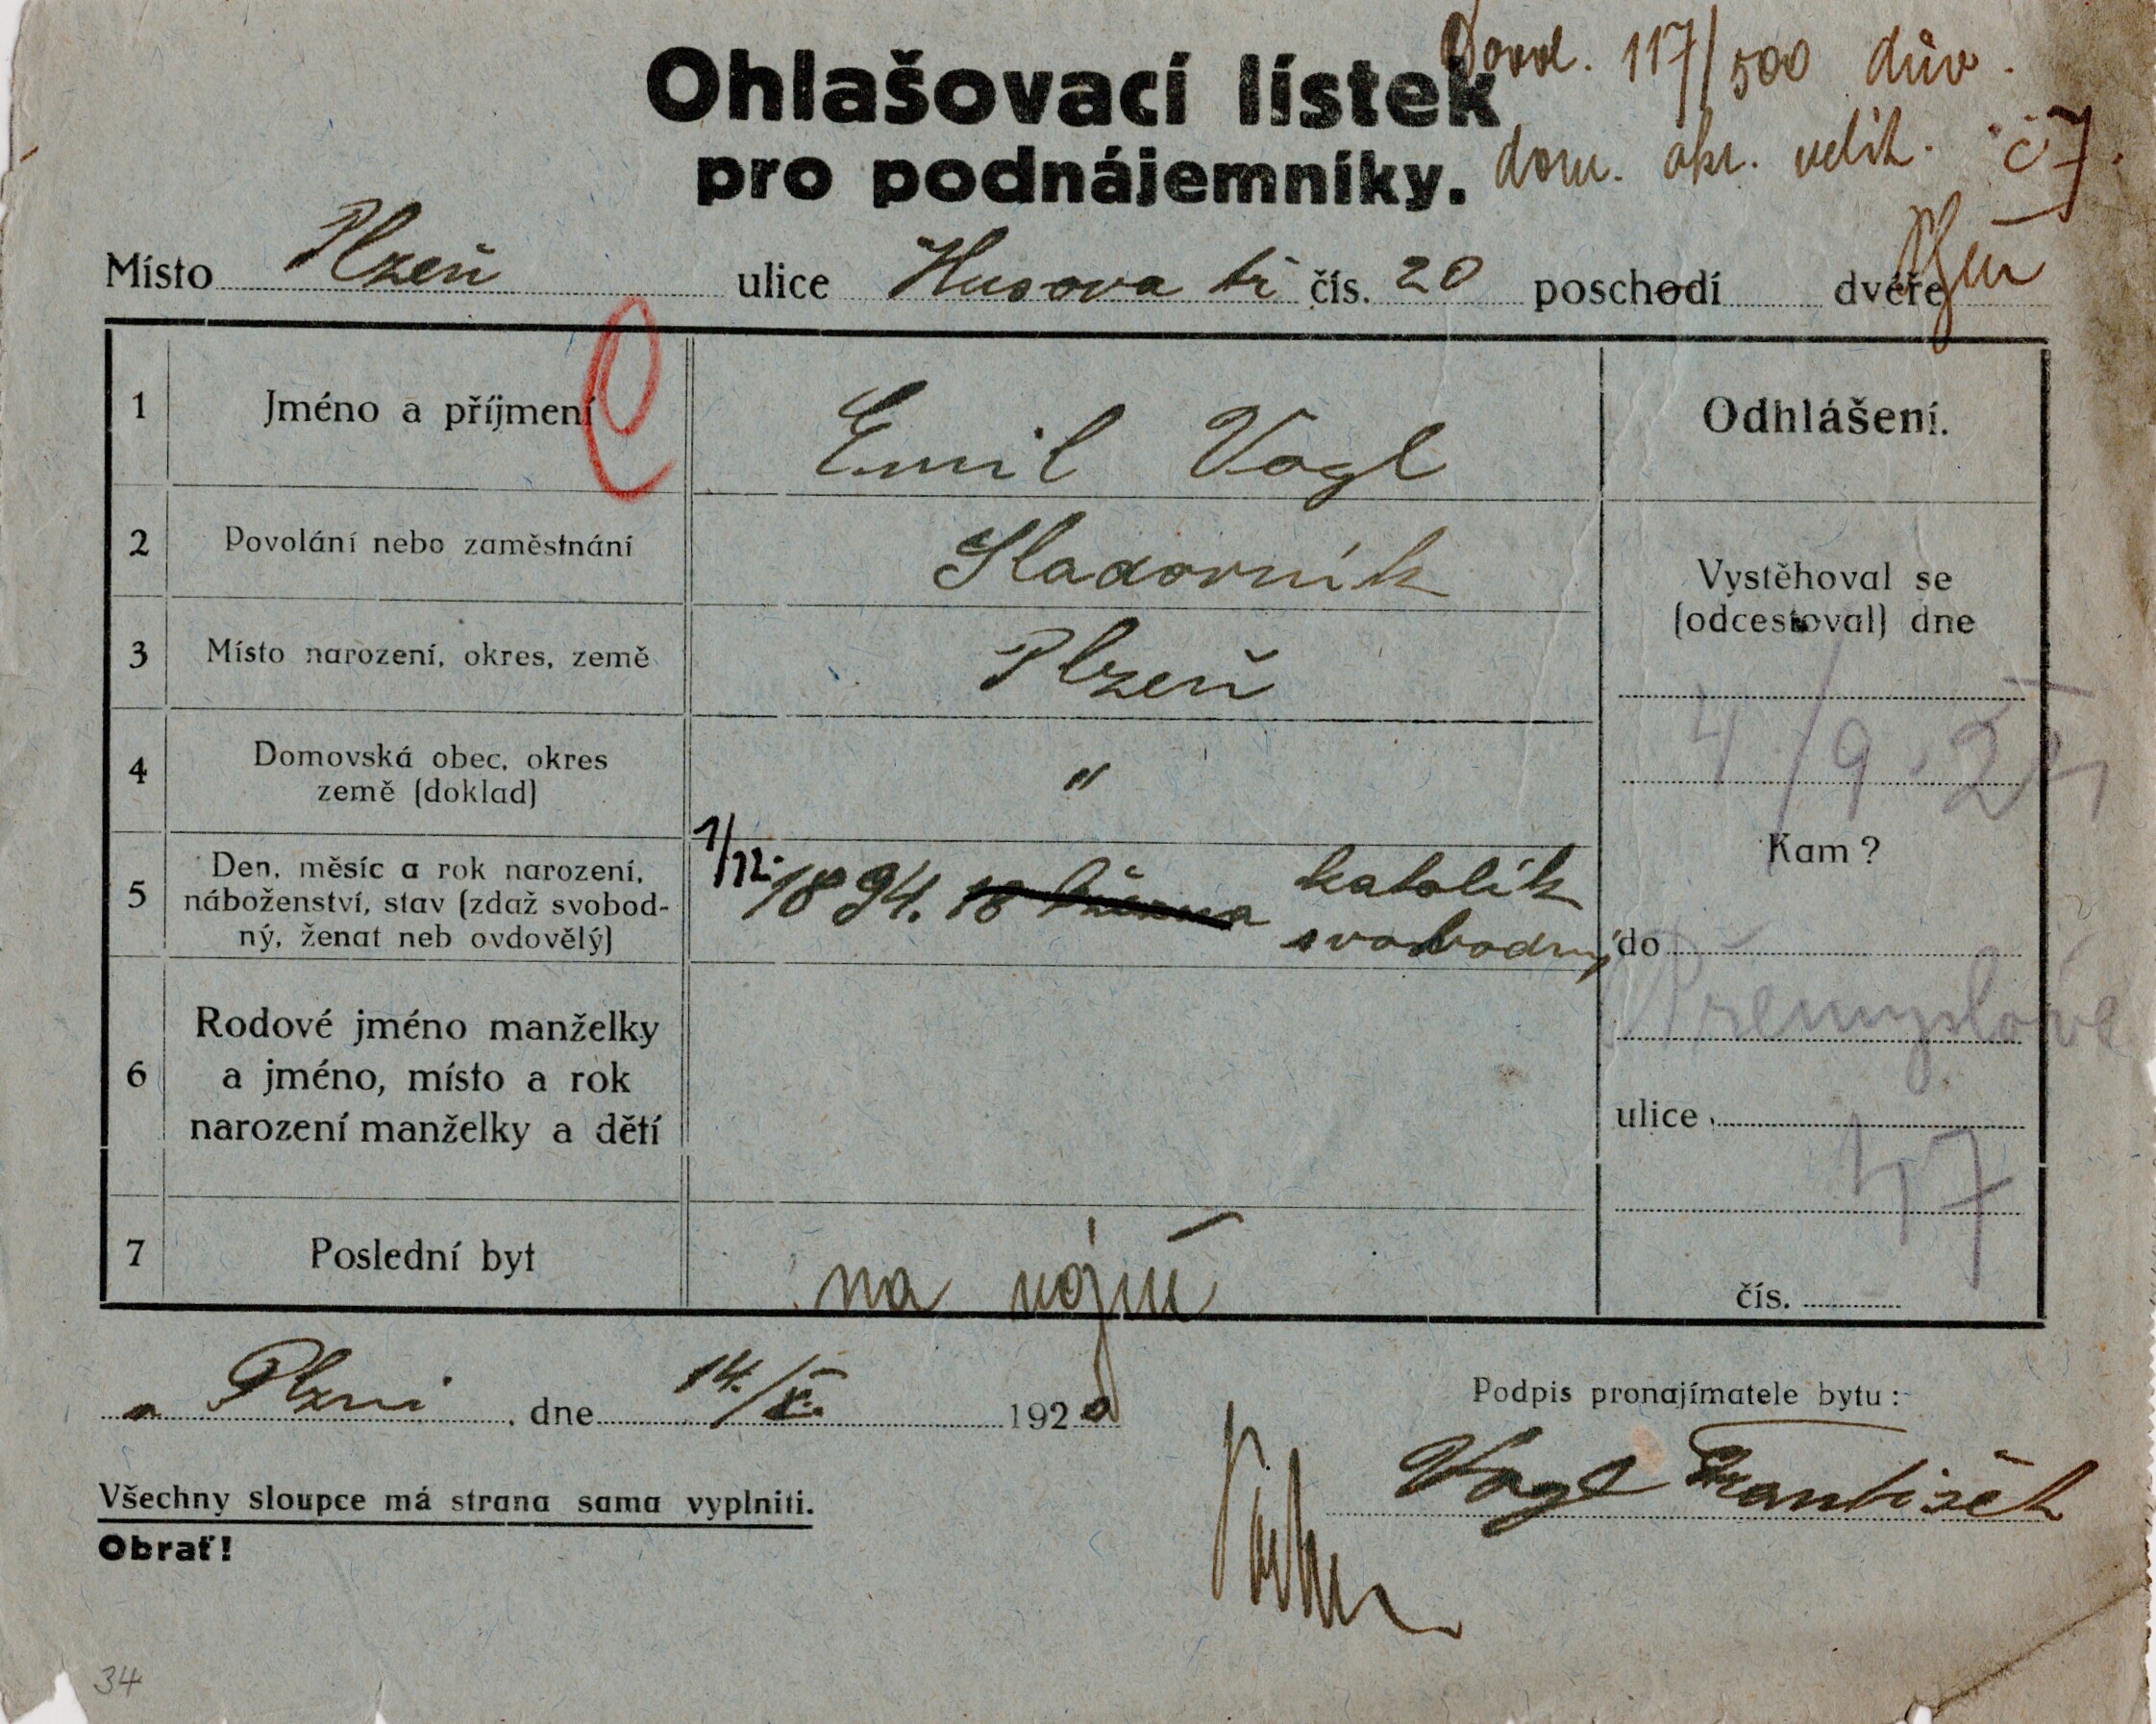 117/500 dův.
Ohlašovací lístek
dom. okr. velit. č 7.
pro podnájemníky.
Plzeň
Místo Plzeň ulice Husova tř čís. 20 poschodí dvéře
1 Jméno a příjmení Emil Vogl Odhlášení.
2 Povolání nebo zaměstnání Sladovník Vystěhoval se
(odcestoval) dne
3 Místo narození, okres, země Plzeň
4/9.24
4 Domovská obec, okres
země (doklad) "
Kam?
1/12.
5 Den, měsíc a rok narození,
náboženství, stav (zdaž svobod-
ný, ženat neb ovdovělý) 1894. 18 března katolík
svobodný
do Přemyslova
6 Rodové jméno manželky
a jméno, místo a rok
narození manželky a dětí
ulice
47
7 Poslední byt na vojně
čís.
v Plzni, dne 14./X. 1920
Podpis pronajímatele bytu:
Vogl František
Všechny sloupce má strana sama vyplniti.
Obrať!
34